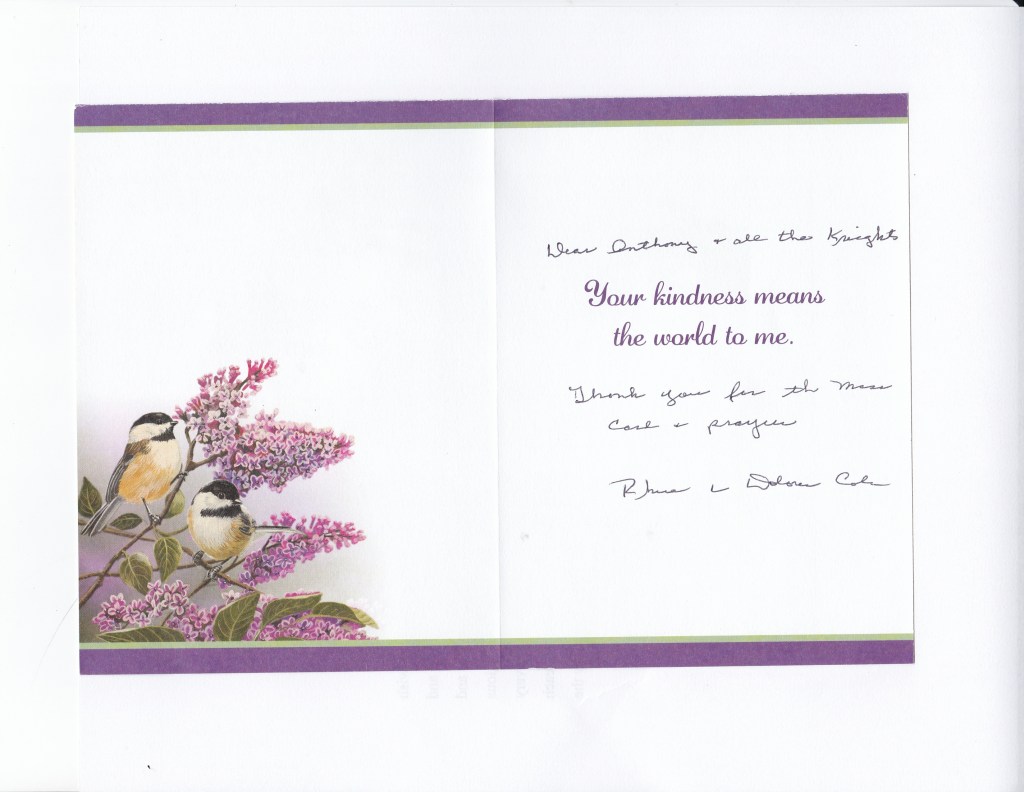 Dear Anthony & all the Knights
Your kindness means
the world to me.
Thank you for the Mass
Card & prayers
& Dolores